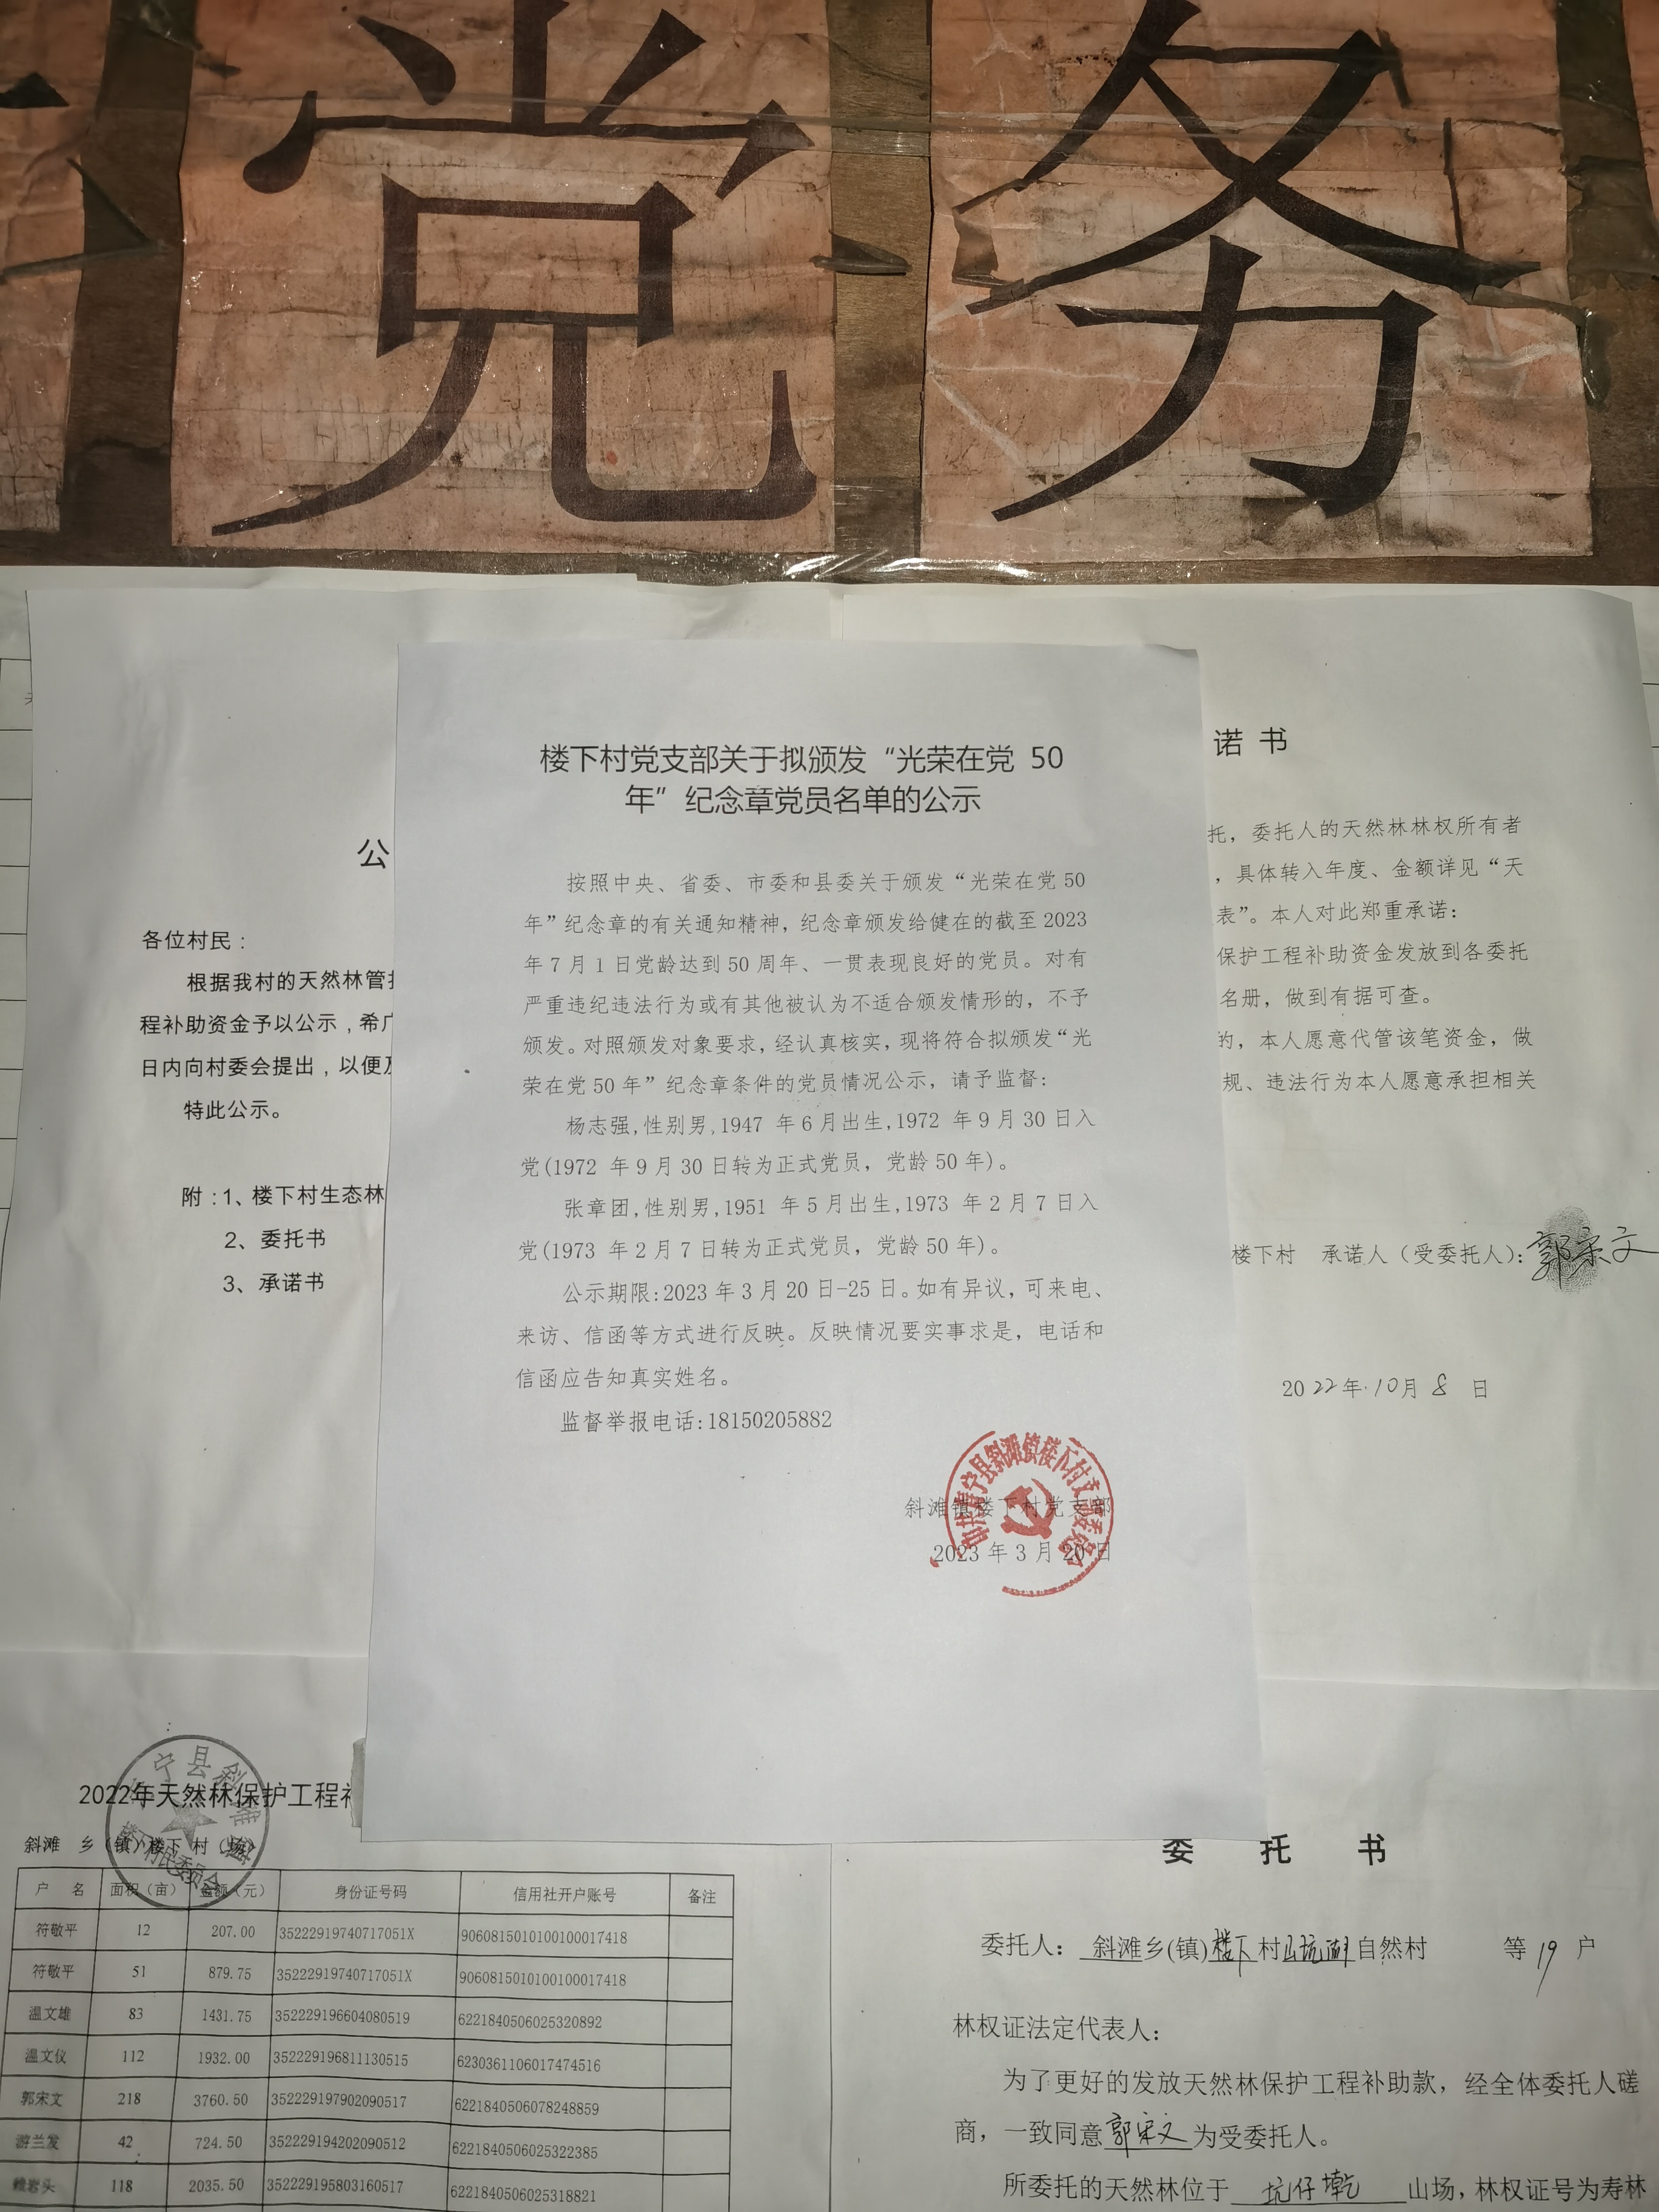 党务
楼下村党支部关于拟颁发“光荣在党 50
年”纪念章党员名单的公示
按照中央、省委、市委和县委关于颁发“光荣在党 50
年”纪念章的有关通知精神，纪念章颁发给健在的截至 2023
年 7 月 1 日党龄达到 50 周年、一贯表现良好的党员。对有
严重违纪违法行为或有其他被认为不适合颁发情形的，不予
颁发。对照颁发对象要求，经认真核实，现将符合拟颁发“光
荣在党 50 年”纪念章条件的党员情况公示，请予监督：
杨志强,性别男,1947 年 6 月出生,1972 年 9 月 30 日入
党(1972 年 9 月 30 日转为正式党员，党龄 50 年)。
张章团,性别男,1951 年 5 月出生,1973 年 2 月 7 日入
党(1973 年 2 月 7 日转为正式党员，党龄 50 年)。
公示期限:2023 年 3 月 20 日-25 日。如有异议，可来电、
来访、信函等方式进行反映。反映情况要实事求是，电话和
信函应告知真实姓名。
监督举报电话:18150205882
斜滩镇楼下村党支部
2023 年 3 月 20 日
公
各位村民：
根据我村的天然林管
程补助资金予以公示，希
日内向村委会提出，以便
特此公示。
附：1、楼下村生态林
2、委托书
3、承诺书
诺 书
托，委托人的天然林林权所有者
，具体转入年度、金额详见“天
表”。本人对此郑重承诺：
保护工程补助资金发放到各委托
名册，做到有据可查。
的，本人愿意代管该笔资金，做
规、违法行为本人愿意承担相关
楼下村 承诺人（受委托人）：郭宋文
2022年10月8日
2022年天然林保护工程
斜滩 乡（镇）楼下 村（场）
户 名 面积（亩） 金额（元） 身份证号码 信用社开户账号 备注
符敬平 12 207.00 35222919740717051X 9060815010100100017418
符敬平 51 879.75 35222919740717051X 9060815010100100017418
温文雄 83 1431.75 352229196604080519 6221840506025320892
温文仪 112 1932.00 352229196811130515 6230361106017474516
郭宋文 218 3760.50 352229197902090517 6221840506078248859
游兰发 42 724.50 352229194202090512 6221840506025322385
赖岩头 118 2035.50 352229195803160517 6221840506025318821
委 托 书
委托人：斜滩乡(镇)楼下村自然村 等 19 户
林权证法定代表人：
为了更好的发放天然林保护工程补助款，经全体委托人磋
商，一致同意郭宋文为受委托人。
所委托的天然林位于 坑仔 山场，林权证号为寿林